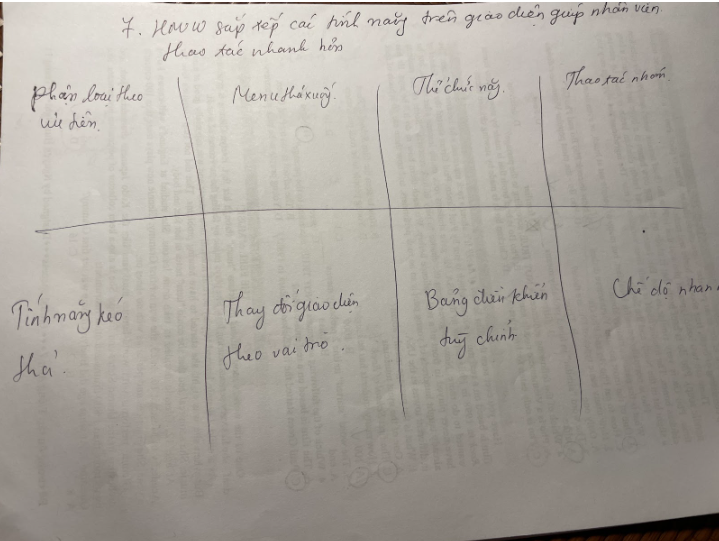 7. HMW sắp xếp các tính năng trên giao diện giúp nhân viên
thao tác nhanh hơn
Phân loại theo
ưu tiên.
Menu thả xuống.
Thẻ chức năng.
Thao tác nhóm.
Tính năng kéo
thả.
Thay đổi giao diện
theo vai trò.
Bảng điều khiển
tuỳ chỉnh
Chế độ nhan